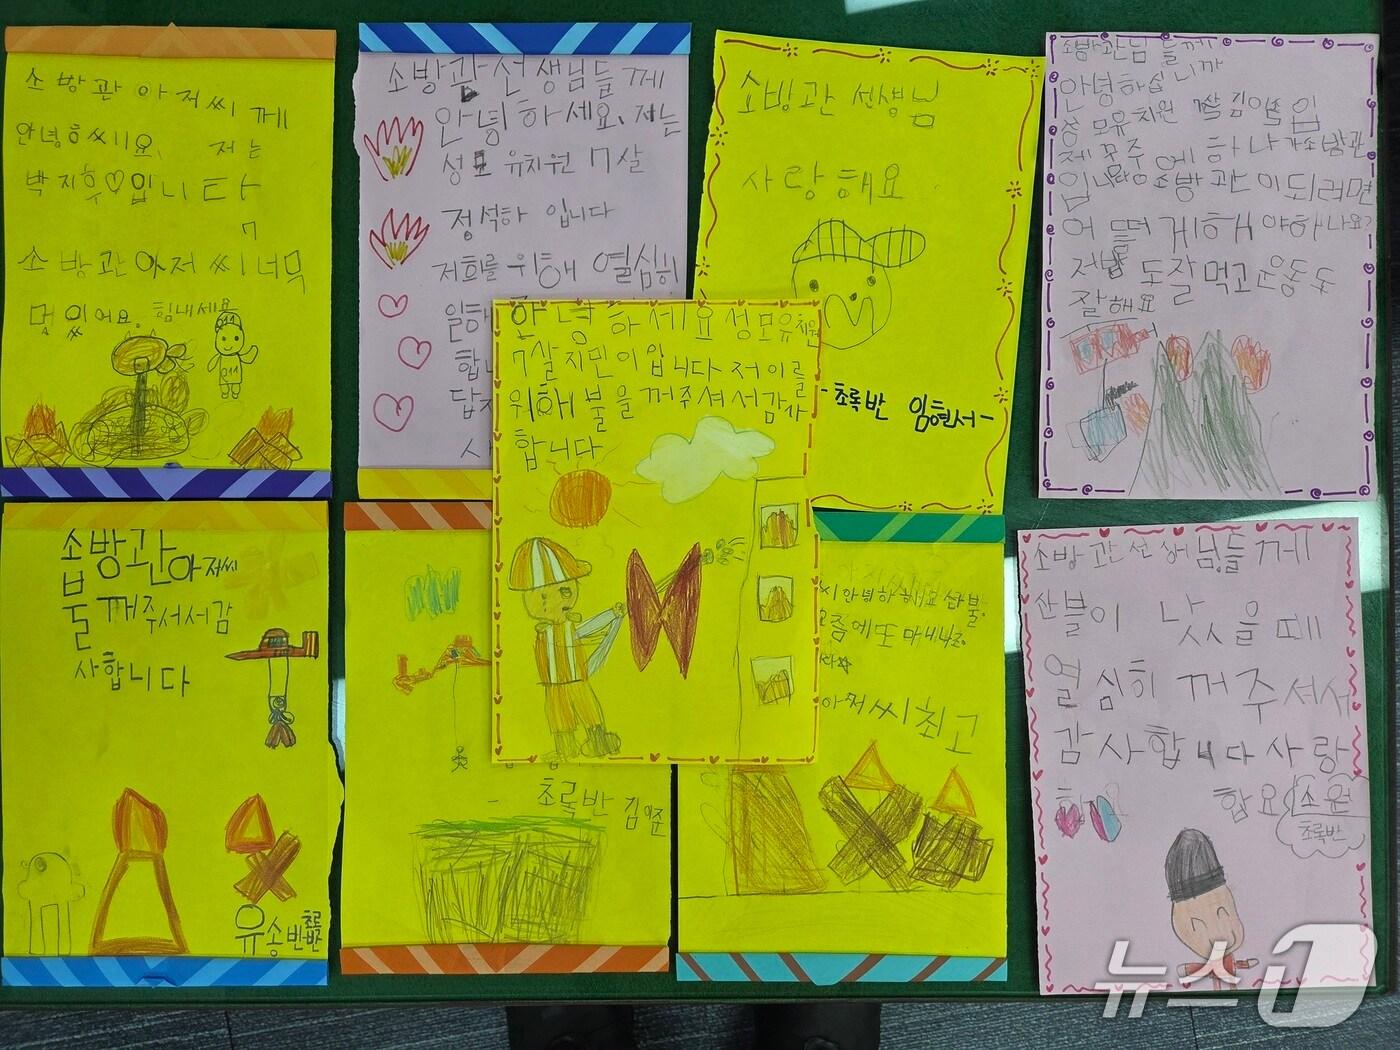 소방관 아저씨께
안녕하세요. 저는
박지후♡입니다
7
소방관아저씨너무
멋있어요. 힘내세요
011
011
소방관선생님들께
안녕하세요. 저는
성모유치원 7살
정석하 입니다
저희를 위해 열심히
일해
합니
답
사
소방관 선생님
사랑해요
-초록반 임현서-
소방관님들께
안녕하십니까
성모유치원
소방관
입니다 소방관이되려면
어떻게해야하나요?
저 도잘먹고운동도
잘해요
안녕하세요성모유치원
7살지민이입니다저이를
위해불을꺼주셔서감사
합니다
소방관아저씨
불꺼주셔서감
사합니다
유송반초록반
초록반 김
안녕하
아저씨최고
소방관선생님들께
산불이 났을때
열심히 꺼주셔서
감사합니다사랑
합요
소원
초록반
뉴스1